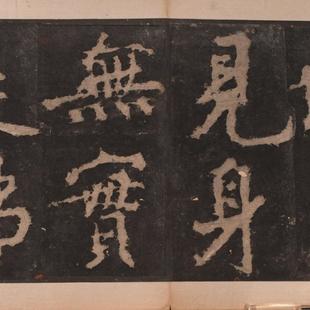 見身
無實